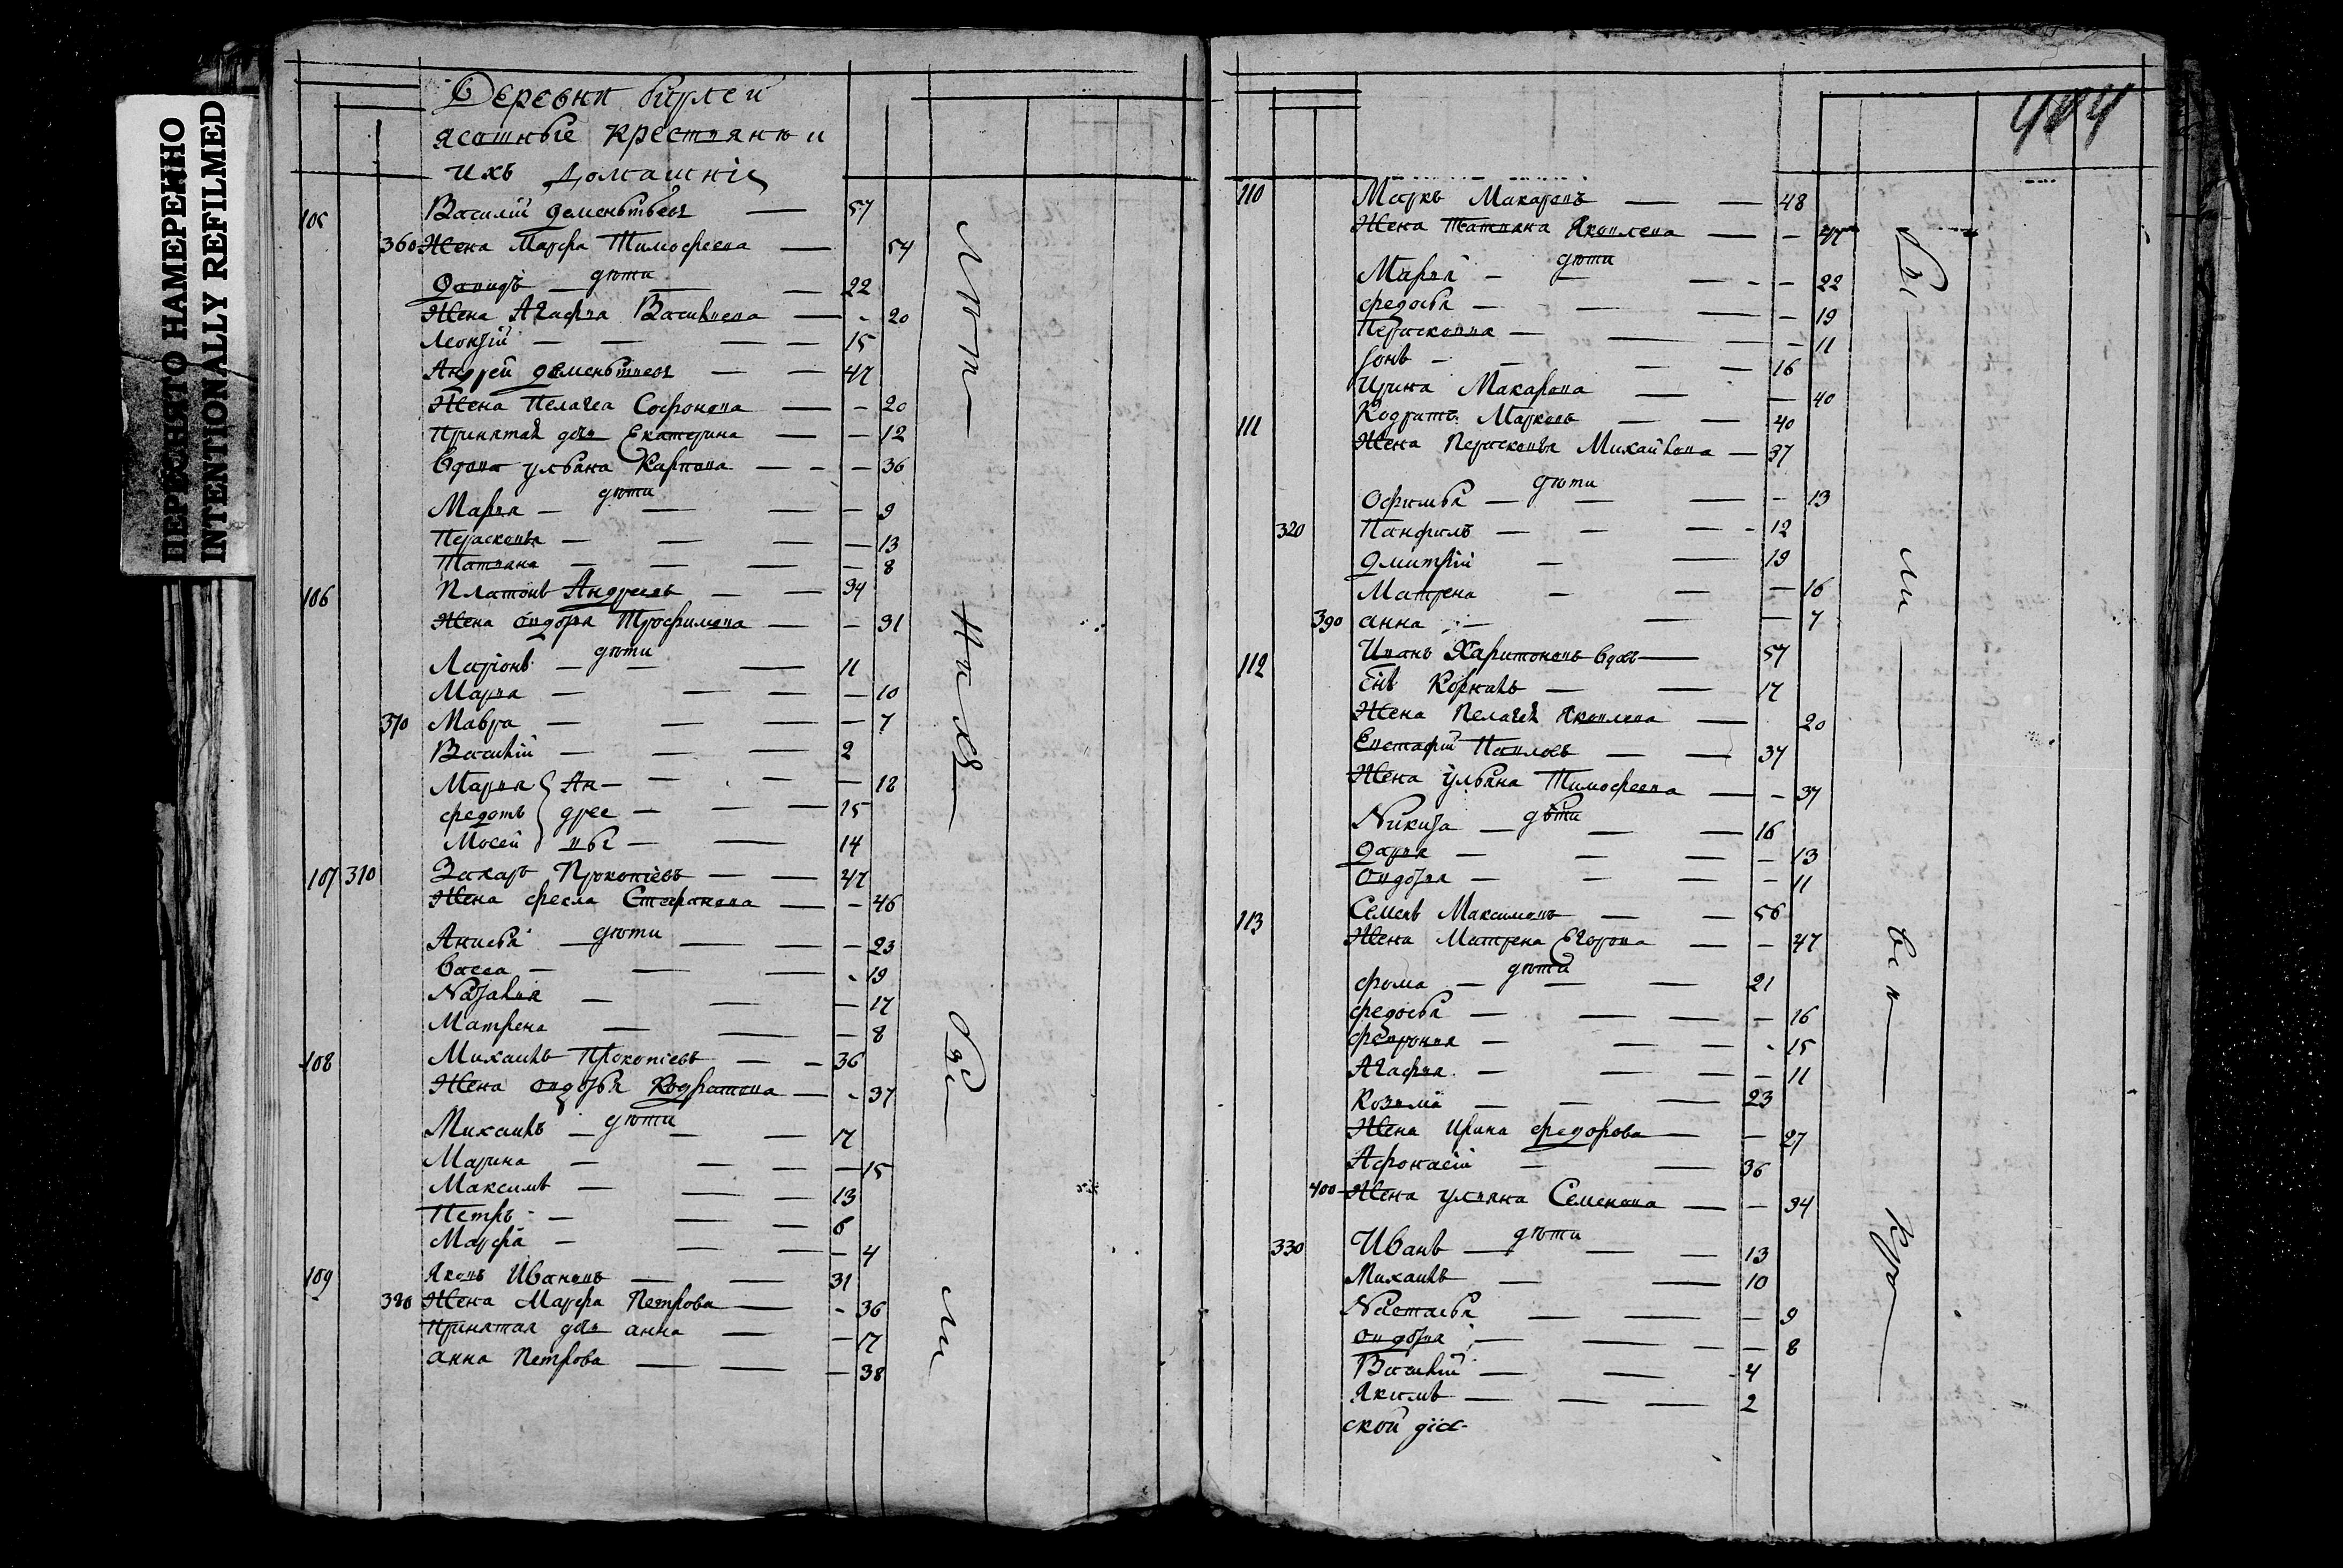 ПЕРЕСНЯТО НАМЕРЕННО
INTENTIONALLY REFILMED
Деревни
ясашные крестьяне и
ихъ домашніе
105 Василий Дементьевъ 57
360 Жена Марфа Тимофеева 54
дѣти
Давидъ 22
Жена Агафья Васильева 20
Леонтий 15
Андрей Дементьевъ 47
Жена Пелагея Софонова 20
Принятая дочь Екатерина 12
Вдова ульяна Карпова 36
дѣти
Марья 9
Парасковья 13
Татьяна 8
106 Платонъ Андреевъ 34
Жена Евдокья Трофимова 31
дѣти
Ларіонъ 11
Марья 10
370 Мавра 7
Василій 2
Марья Ан- 18
Федотъ дрее 15
Мосей вы 14
107 310 Захаръ Прокопіевъ 47
Жена Фекла Стефанова 46
дѣти
Анисья 23
Васса 19
Наталья 17
Матрена 8
108 Михаилъ Прокопіевъ 36
Жена Евдокья Кодратова 37
дѣти
Михаилъ 17
Марина 15
Максимъ 13
Петръ 6
Марфа 4
109 Яковъ Ивановъ 31
380 Жена Марфа Петрова 36
Принятая дочь анна 17
анна Петрова 38
110 Маркъ Макаровъ 48
Жена Татьяна Яковлева 47
дѣти
Марья 22
Федосья 19
Парасковья 11
16
Ирина Макарова 40
111 Кодратъ Марковъ 40
Жена Парасковья Михайлова 37
дѣти
Офимья 13
320 Панфилъ 12
Дмитрій 19
Матрена 16
390 анна 7
112 Иванъ Харитоновъ вдовъ 57
сынъ Корнилъ 17
Жена Пелагея Яковлева 20
Евстафий Павловъ 37
Жена ульяна Тимофеева 37
дѣти
Никита 16
Дарья 13
Евдокья 11
113 Семенъ Максимовъ 56
Жена Матрена Егорова 47
дѣти
Фома 21
Федосья 16
Февронья 15
Агафья 11
Козьма 23
Жена Ирина Федорова 27
Афонасій 36
400 Жена ульяна Семенова 34
дѣти
330 Иванъ 13
Михаилъ 10
Настасья 9
Евдокья 8
Василій 4
Якимъ 2